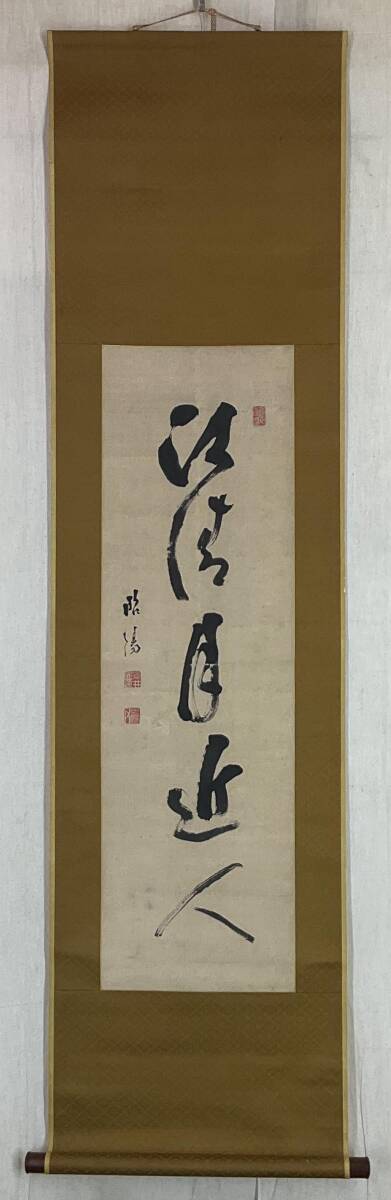 江清月近人
昭陽